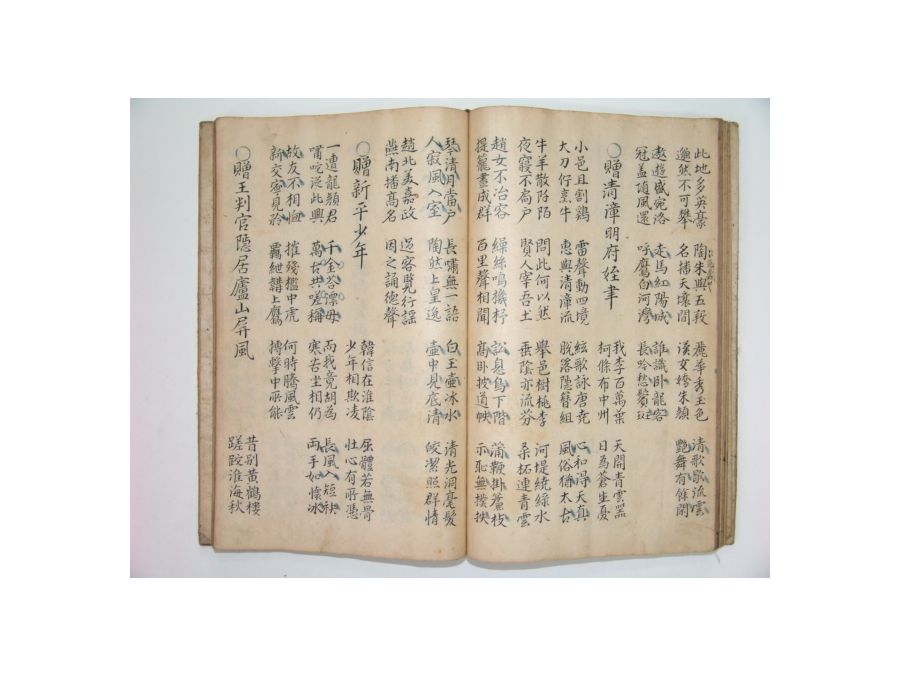 此地多英豪
邈然不可攀
陶朱與五羖
名播天壤間
麗華秀玉色
漢女嬌朱顔
清歌遏流雲
艶舞有餘閑
遨遊盛宛洛
冠盖随風還
走馬紅陽城
呼鷹白河灣
誰識卧龍客
長吟愁鬢斑
○贈清漳明府姪聿
我李百萬葉
柯條布中州
天開青雲器
日爲蒼生憂
小邑且割鷄
大刀佇烹牛
雷聲動四境
惠與清漳流
絃歌詠唐堯
脫落隱簪組
心和得天真
風俗猶太古
牛羊散阡陌
夜寢不扃戶
問此何以然
賢人宰吾土
舉邑樹桃李
垂陰亦流芬
河堤繞綠水
桑柘連青雲
趙女不冶容
提籠晝成群
繰絲鳴機杼
百里聲相聞
訟息鳥下階
高卧披道帙
蒲鞭掛簷枝
示恥無撲抶
琴清月當戶
人寂風入室
長嘯無一語
陶然上皇逸
白玉壷氷水
壷中見底清
清光洞毫髮
皎潔照群情
趙北美嘉政
燕南播高名
過客覽行謡
因之誦德聲
○贈新平少年
韓信在淮陰
少年相欺凌
屈體若無骨
壯心有所憑
一遭龍顔君
嘯咤從此興
千金答漂母
萬古共嗟稱
而我竟胡爲
寒苦坐相仍
長風入短袂
兩手如懷氷
故友不相恤
新交寧見矜
摧殘檻中虎
羈紲韝上鷹
何時騰風雲
搏擊申所能
○贈王判官隱居廬山屏風
昔別黃鶴樓
蹉跎淮海秋